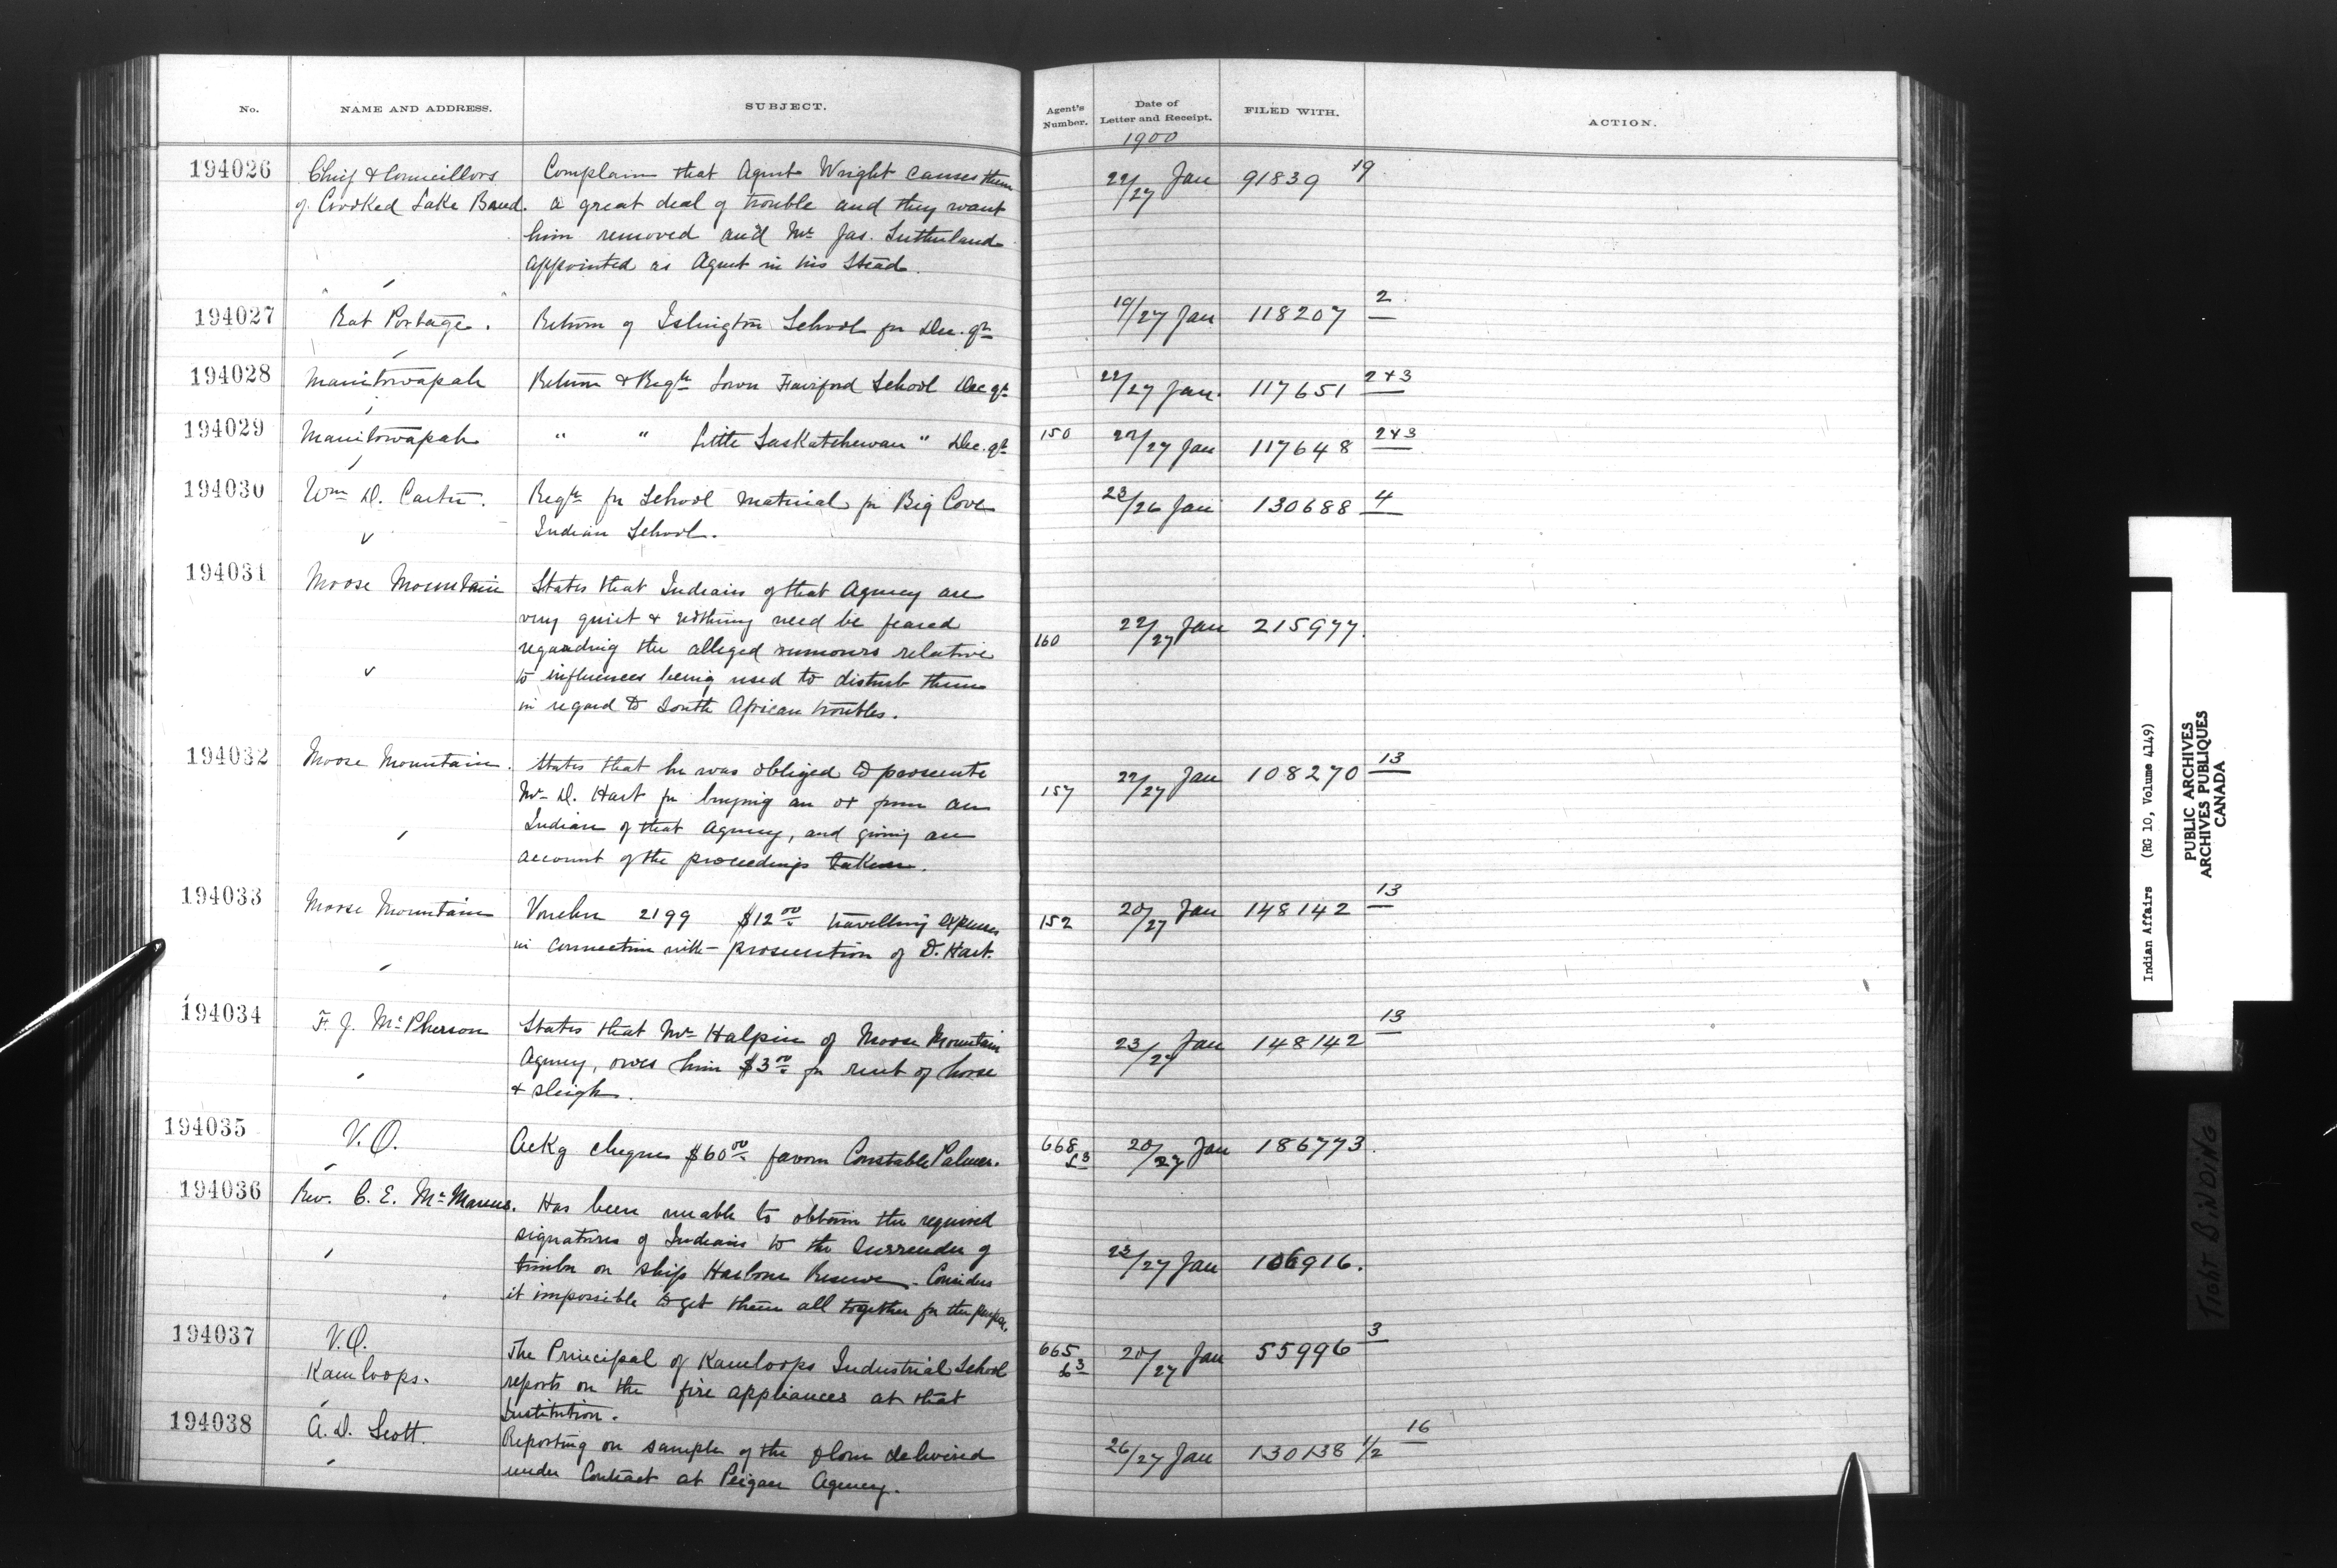 No. NAME AND ADDRESS. SUBJECT. Agent's Number. Date of Letter and Receipt. FILED WITH. ACTION.
1900
194026 Chief & Councillors Complain that Agent Wright causes them 22/27 Jan 91839 19
of Crooked Lake Band. a great deal of trouble and they want
him removed and Mr Jas. Sutherland
appointed as Agent in his stead.
194027 Rat Portage. Return of Islington School for Dec. qr 19/27 Jan 118207 2
194028 Manitowapah Return & Reqn Lower Fairford School Dec qr 22/27 Jan. 117651 2+3
194029 Manitowapah " " Little Saskatchewan " Dec. qr 150 22/27 Jan 117648 2+3
194030 Wm D. Carter. Reqn for School material for Big Cove 23/26 Jan 130688 4
Indian School.
194031 Moose Mountain States that Indians of that Agency are
very quiet & nothing need be feared 22/27 Jan 215977.
regarding the alleged rumours relative 160
to influences being used to disturb them
in regard to South African troubles.
194032 Moose Mountain. States that he was obliged to prosecute 22/27 Jan 108270 13
Mr D. Hart for buying an ox from an 157
Indian of that Agency, and giving an
account of the proceedings taken.
194033 Moose Mountain Voucher 2199 $12.00 travelling expenses 152 20/27 Jan 148142 13
in connection with prosecution of D. Hart.
194034 F. J. McPherson States that Mr Halpin of Moose Mountain 23/27 Jan 148142 13
Agency, owes him $3.00 for rent of horse
& sleigh.
194035 V.O. Ackg cheque $60.00 favour Constable Palmer. 668 20/27 Jan 186773.
194036 Rev. C. E. McManus. Has been unable to obtain the required
signatures of Indians to the Surrender of
timber on Ship Harbour Reserve. Considers 23/27 Jan 106916.
it impossible to get them all together for the purpose.
194037 V.O. The Principal of Kamloops Industrial School 665 20/27 Jan 55996 3
Kamloops. reports on the fire appliances at that
Institution.
194038 A. D. Scott. Reporting on sample of the flour delivered 26/27 Jan 130138 1/2 16
under Contract at Peigan Agency.
Indian Affairs (RG 10, Volume 4149)
PUBLIC ARCHIVES
ARCHIVES PUBLIQUES
CANADA
TIGHT BINDING